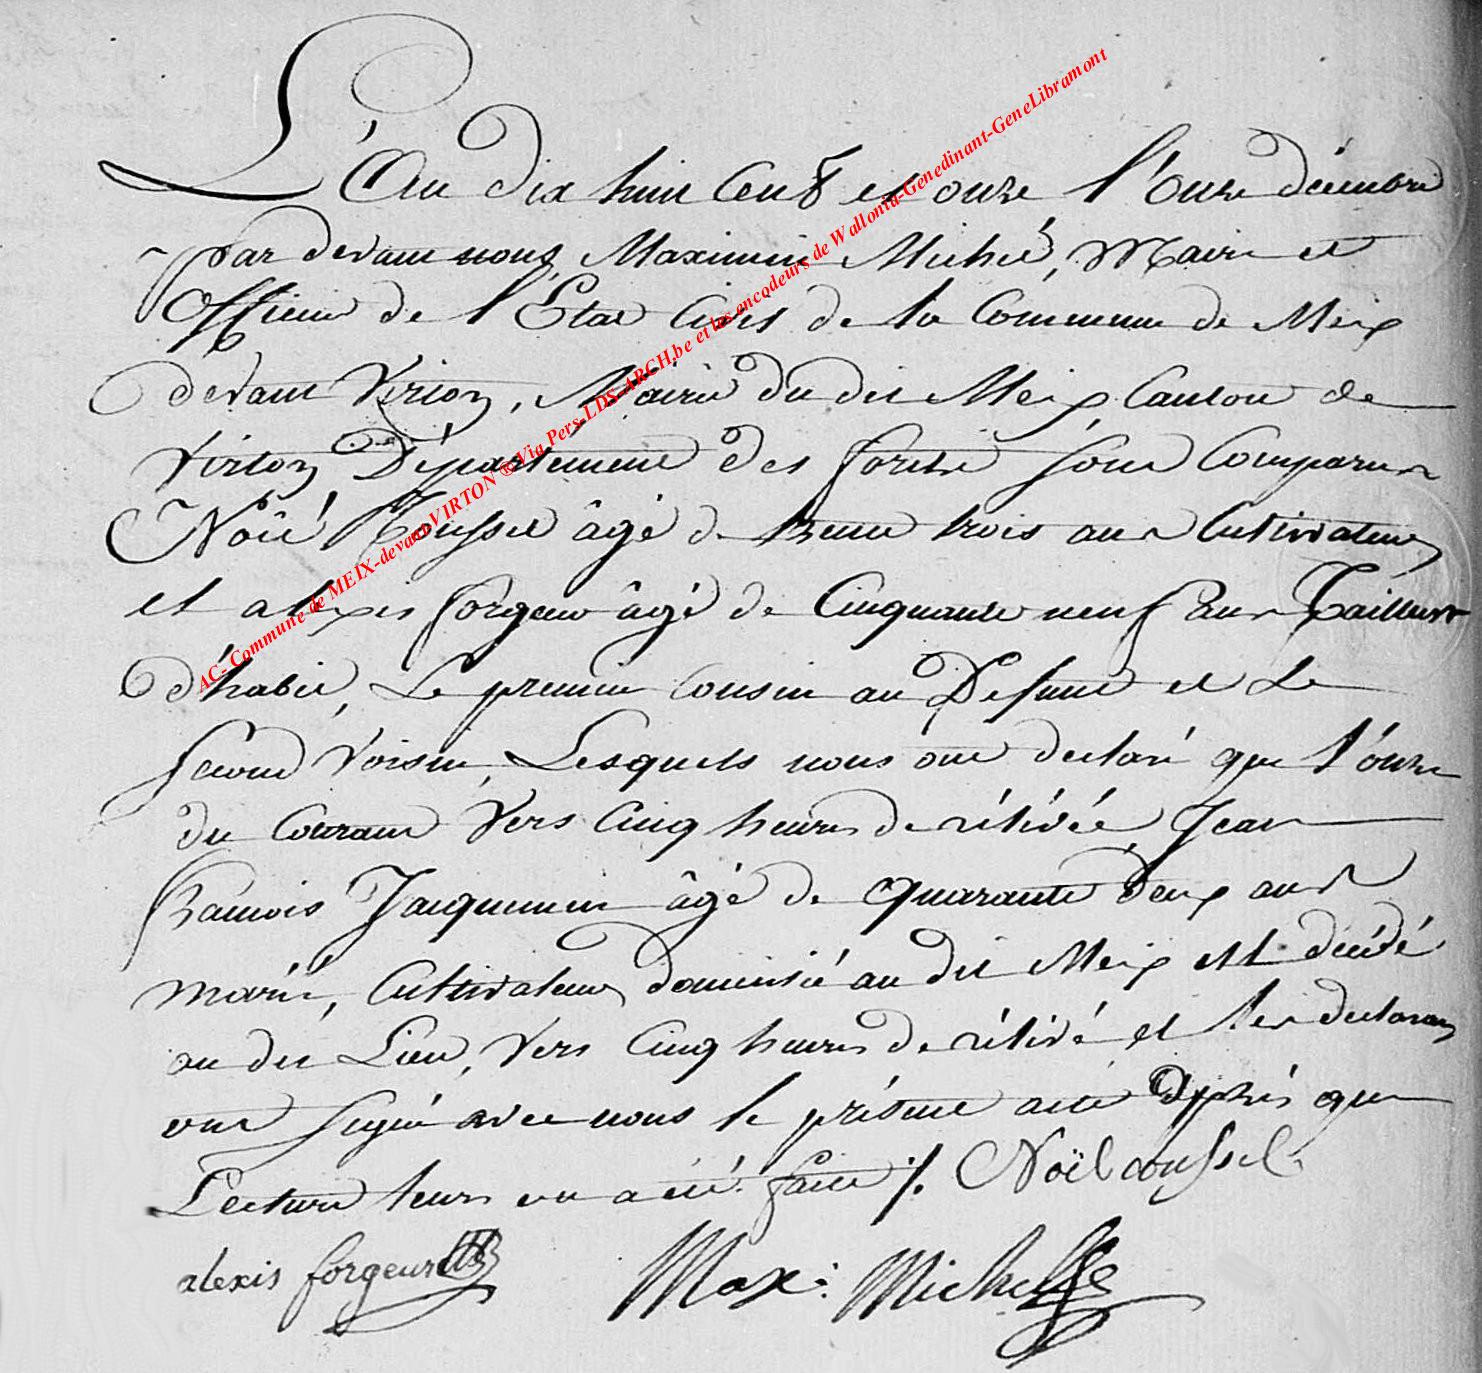 L'An dix huit Cent et onze l'onze décembre
par devant nous Maximin Michel, Maire et
Officier de l'Etat Civil de la Commune de Meix
devant Virton, Mairie du dit Meix Canton de
Virton Département des forets sont Comparus
Noël Roussel âgé de trente trois ans Cultivateur
et alexis forgeur âgé de Cinquante neuf ans Tailleur
d'habit, Le premier Cousin au Defunt et Le
second Voisin, Lesquels nous ont declaré que l'onze
du Courant Vers Cinq heures de rélévée, Jean
francois Jacquemin âgé de quarante deux ans
marié, Cultivateur domicilié au dit Meix est décédé
au dit Lieu, Vers Cinq heures de rélévé et les declarans
ont signé avec nous le présent acte après que
Lecture leurs en a été faite ./. Noël roussel
alexis forgeur
Max: Michel
AC- Commune de MEIX-devant VIRTON ® Via Pers-LDS-ARCH.be et les encodeurs de Wallonia-Genedinant-GeneLibramont